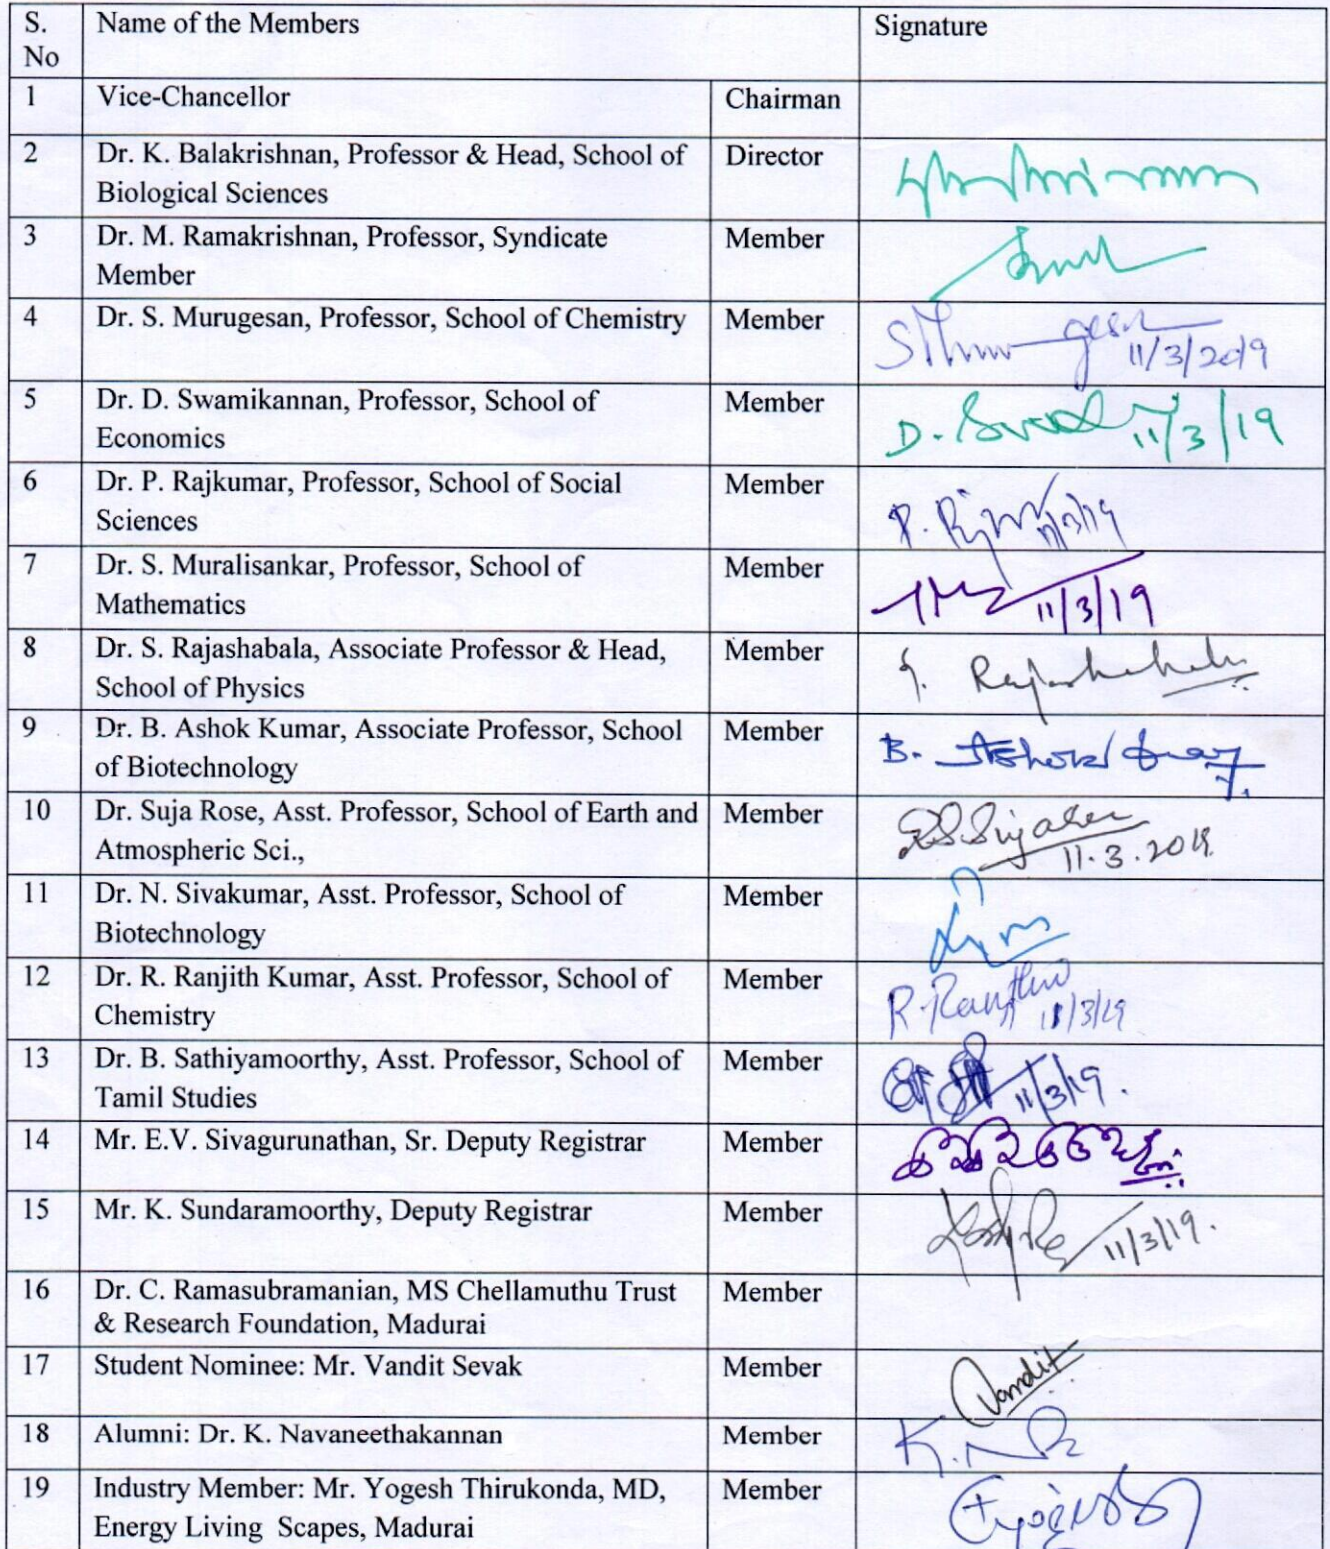 S. No Name of the Members Signature
1 Vice-Chancellor Chairman
2 Dr. K. Balakrishnan, Professor & Head, School of Director
Biological Sciences
3 Dr. M. Ramakrishnan, Professor, Syndicate Member
Member
4 Dr. S. Murugesan, Professor, School of Chemistry Member
11/3/2019
5 Dr. D. Swamikannan, Professor, School of Member
Economics
D. 11/3/19
6 Dr. P. Rajkumar, Professor, School of Social Member
Sciences
P. 11/3/19
7 Dr. S. Muralisankar, Professor, School of Member
Mathematics
11/3/19
8 Dr. S. Rajashabala, Associate Professor & Head, Member
School of Physics
S. Rajashabala
9 Dr. B. Ashok Kumar, Associate Professor, School Member
of Biotechnology
B. Ashok
10 Dr. Suja Rose, Asst. Professor, School of Earth and Member
Atmospheric Sci.,
11.3.2019
11 Dr. N. Sivakumar, Asst. Professor, School of Member
Biotechnology
12 Dr. R. Ranjith Kumar, Asst. Professor, School of Member
Chemistry
R. 11/3/19
13 Dr. B. Sathiyamoorthy, Asst. Professor, School of Member
Tamil Studies
11/3/19.
14 Mr. E.V. Sivagurunathan, Sr. Deputy Registrar Member
15 Mr. K. Sundaramoorthy, Deputy Registrar Member
11/3/19.
16 Dr. C. Ramasubramanian, MS Chellamuthu Trust Member
& Research Foundation, Madurai
17 Student Nominee: Mr. Vandit Sevak Member
Vandit
18 Alumni: Dr. K. Navaneethakannan Member
K.
19 Industry Member: Mr. Yogesh Thirukonda, MD, Member
Energy Living Scapes, Madurai